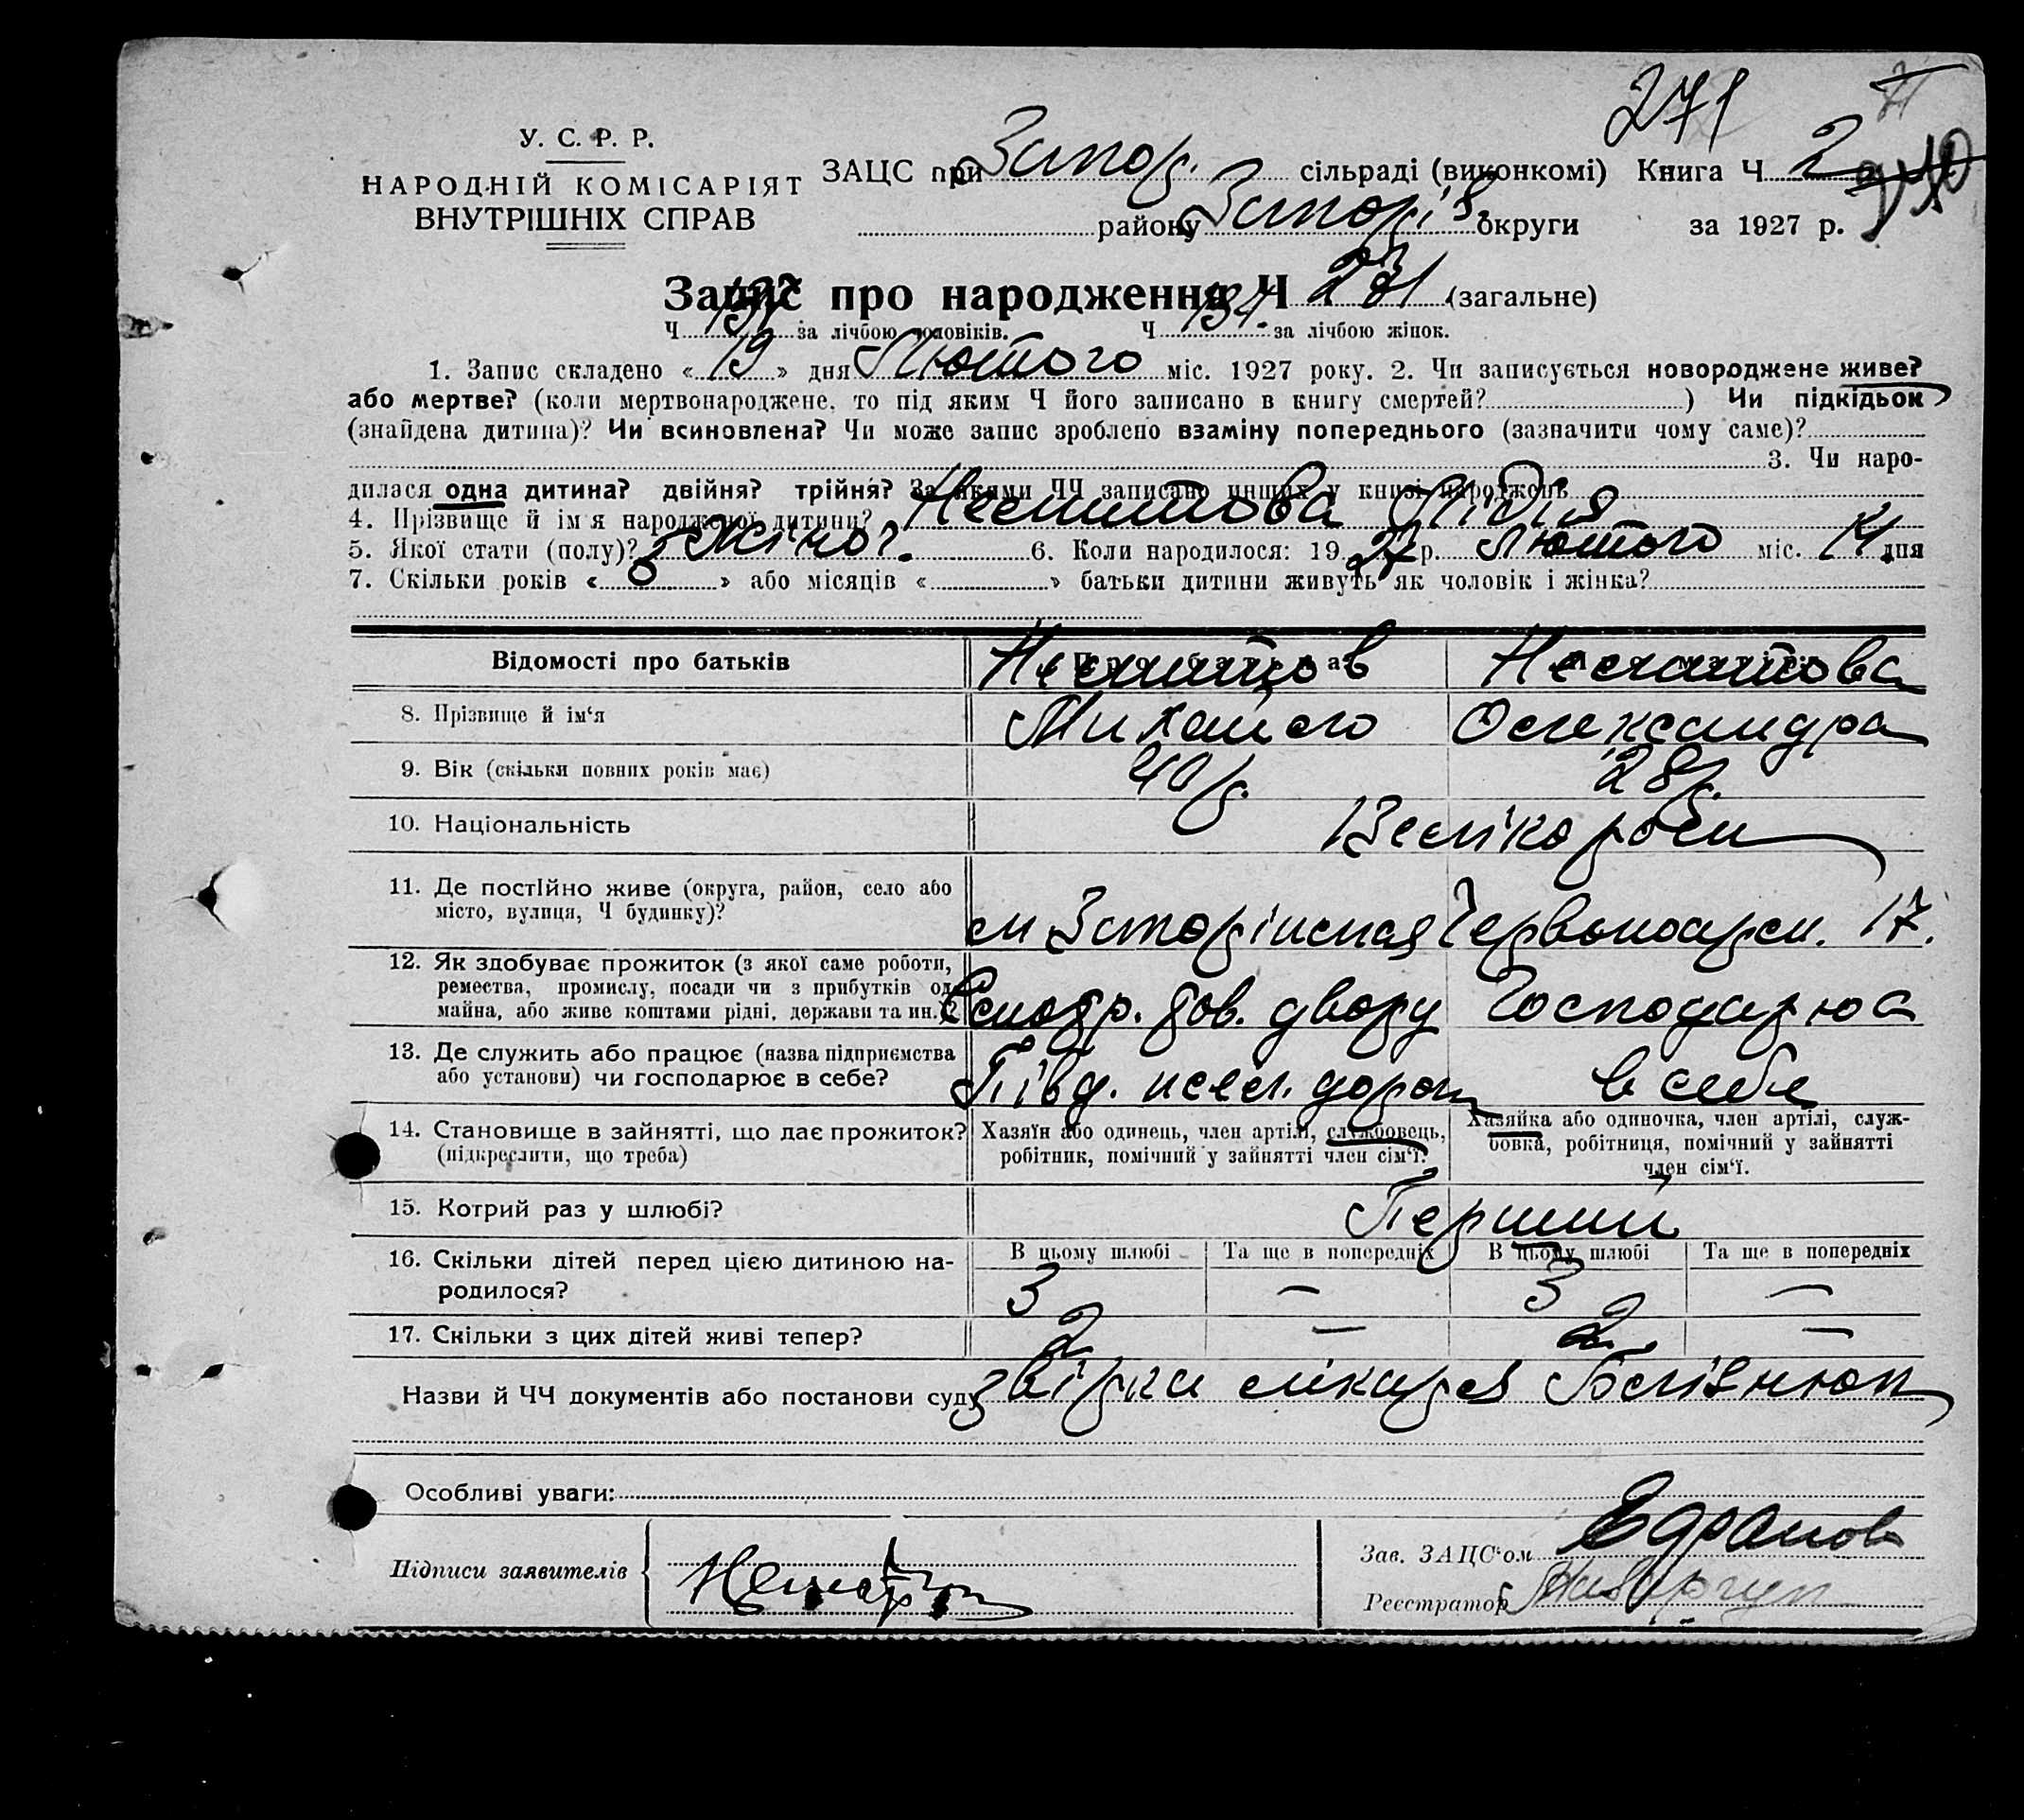 271
У. С. Р. Р.
НАРОДНІЙ КОМІСАРІЯТ
ВНУТРІШНІХ СПРАВ
ЗАЦС при Запор. сільраді (виконкомі) Книга Ч. 2
району Запоріз. округи за 1927 р.
Запис про народження Ч 271 (загальне)
Ч. 137 за лічбою чоловіків. Ч. 134 за лічбою жінок.
1. Запис складено « 19 » дня Лютого міс. 1927 року. 2. Чи записується новороджене живе?
або мертве? (коли мертвонароджене, то під яким Ч його записано в книгу смертей? ) Чи підкідьок
(знайдена дитина)? Чи всиновлена? Чи може запис зроблено взаміну попереднього (зазначити чому саме)?
3. Чи наро-
дилася одна дитина? двійня? трійня? За якими ЧЧ записано инших у книзі народжень
4. Прізвище й ім'я народженої дитини? Лідія
5. Якої стати (полу)? Жіноч. 6. Коли народилося: 19 27 р. Лютого міс. 14 дня
7. Скільки років « 8 » або місяців « » батьки дитини живуть як чоловік і жінка?
Відомості про батьків
8. Прізвище й ім'я Михайло Олександра
9. Вік (скільки повних років має) 40 р. 28 р.
10. Національність Велікороси
11. Де постІйно живе (округа, район, село або
місто, вулиця, Ч будинку)?
м Запоріжжя Червоноарм. 17.
12. Як здобуває прожиток (з якої саме роботи,
ремества, промислу, посади чи з прибутків од
майна, або живе коштами рідні, держави та ин.)?
двору Господарюа
13. Де служить або працює (назва підприємства
або установи) чи господарює в себе?
Півд. в себе
14. Становище в зайнятті, що дає прожиток?
(підкреслити, що треба)
Хазяїн або одинець, член артілі, службовець,
робітник, помічний у зайнятті член сім'ї?
Хазяйка або одиночка, член артілі, служ-
бовка, робітниця, помічний у зайнятті
член сім'ї.
15. Котрий раз у шлюбі? Перший
16. Скільки дітей перед цією дитиною на-
родилося?
В цьому шлюбі Та ще в попередніх В цьому шлюбі Та ще в попередніх
3 — 3 —
17. Скільки з цих дітей живі тепер? 2 — 2 —
Назви й ЧЧ документів або постанови суду лікаря
Особливі уваги:
Підписи заявителів
Зав. ЗАЦС'ом
Реєстратор